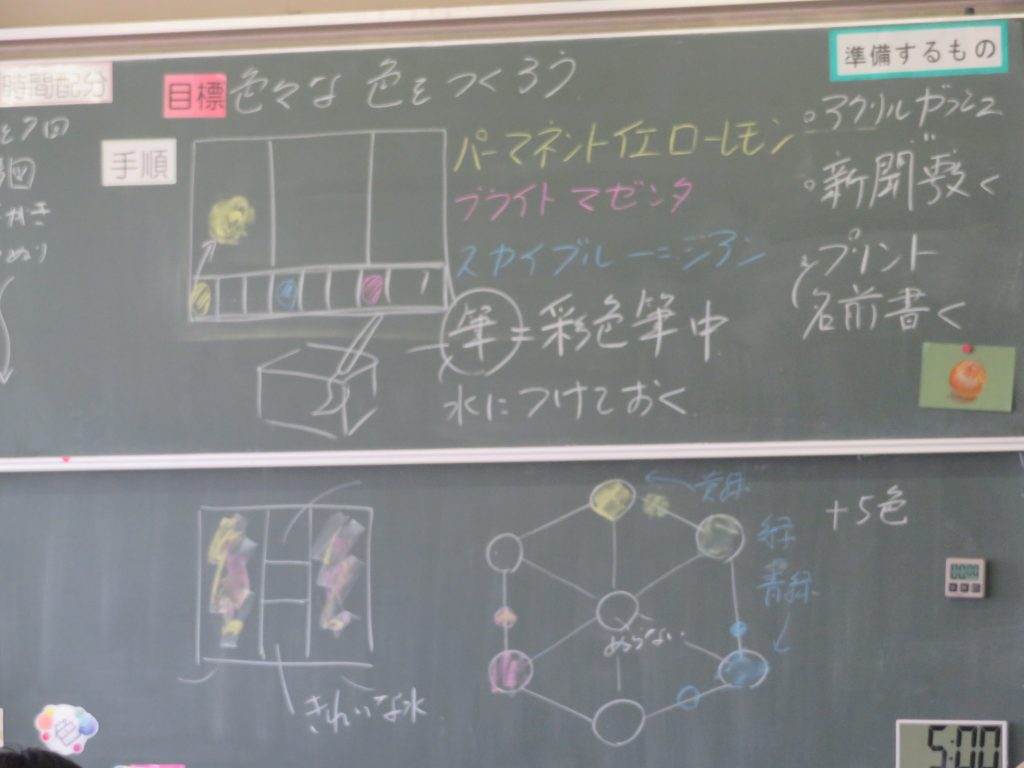 時間配分
目標 色々な色をつくろう
手順
パーマネントイエローレモン
ブライトマゼンタ
スカイブルーニジアン
筆=彩色筆中
水につけておく
準備するもの
。アクリルガッシュ
。新聞敷く
プリント
名前書く
きれいな水
黄緑
緑
青緑
ぬらない
+5色
色
5:00